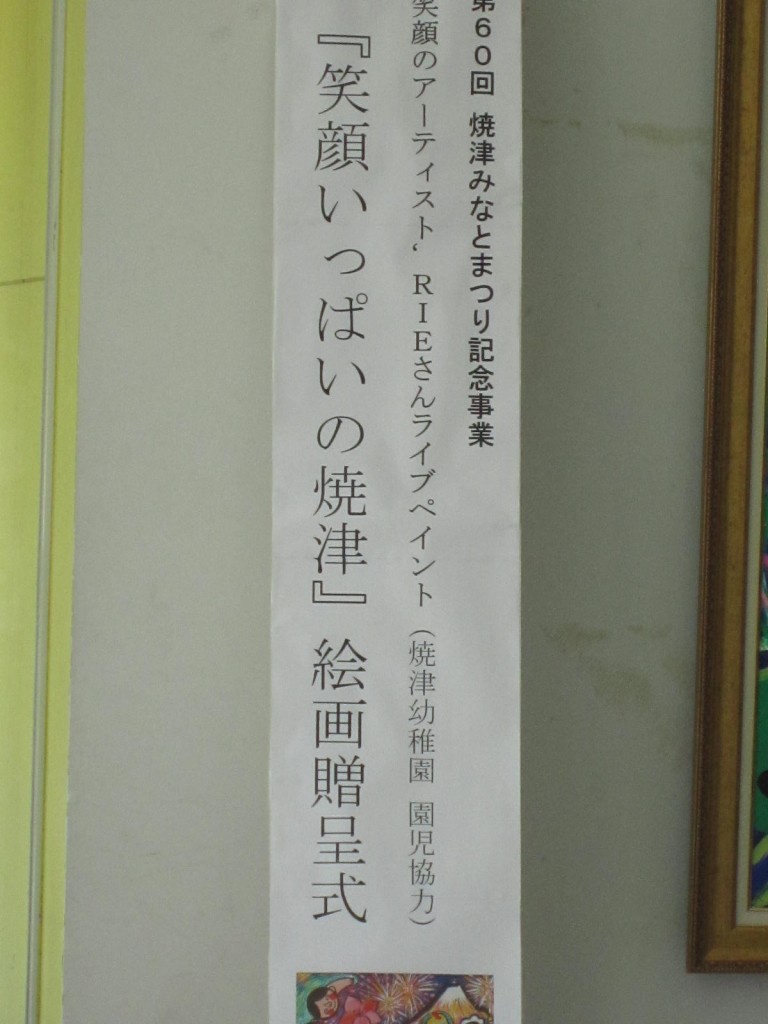 第60回 焼津みなとまつり記念事業
笑顔のアーティスト‘RIEさんライブペイント（焼津幼稚園 園児協力）
『笑顔いっぱいの焼津』絵画贈呈式